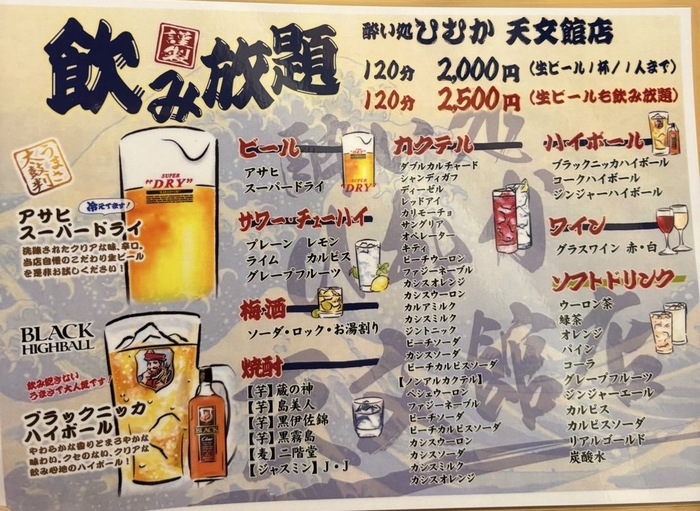 飲み放題
謹製
酔い処 ひむか 天文館店
120分 2,000円 (生ビール1杯/1人まで)
120分 2,500円 (生ビールも飲み放題)
うまさ
太鼓判
SUPER
"DRY"
冷えてます!
アサヒ
スーパードライ
洗練されたクリアな味、辛口。
当店自慢のこだわり生ビール
を是非お試しください!
BLACK
HIGHBALL
飲み飽きない
うまさで大人気です!
ブラックニッカ
ハイボール
やわらかな香りとまろやかな
味わい。クセのない、クリアな
飲み心地のハイボール!
BLACK
ビール
アサヒ
スーパードライ
SUPER
"DRY"
サワー・チューハイ
プレーン レモン
ライム カルピス
グレープフルーツ
梅酒
ソーダ・ロック・お湯割り
焼酎
【芋】蔵の神
【芋】島美人
【芋】黒伊佐錦
【芋】黒霧島
【麦】二階堂
【ジャスミン】J・J
カクテル
ダブルカルチャード
シャンディガフ
ディーゼル
レッドアイ
カリモーチョ
サングリア
オペレーター
キティ
ピーチウーロン
ファジーネーブル
カシスオレンジ
カシスウーロン
カルアミルク
カシスミルク
ジントニック
ピーチソーダ
カシスソーダ
ピーチカルピスソーダ
【ノンアルカクテル】
ペシェウーロン
ファジーネーブル
ピーチソーダ
ピーチカルピスソーダ
カシスウーロン
カシスソーダ
カシスミルク
カシスオレンジ
ハイボール
ブラックニッカハイボール
コークハイボール
ジンジャーハイボール
ワイン
グラスワイン 赤・白
ソフトドリンク
ウーロン茶
緑茶
オレンジ
パイン
コーラ
グレープフルーツ
ジンジャーエール
カルピス
カルピスソーダ
リアルゴールド
炭酸水